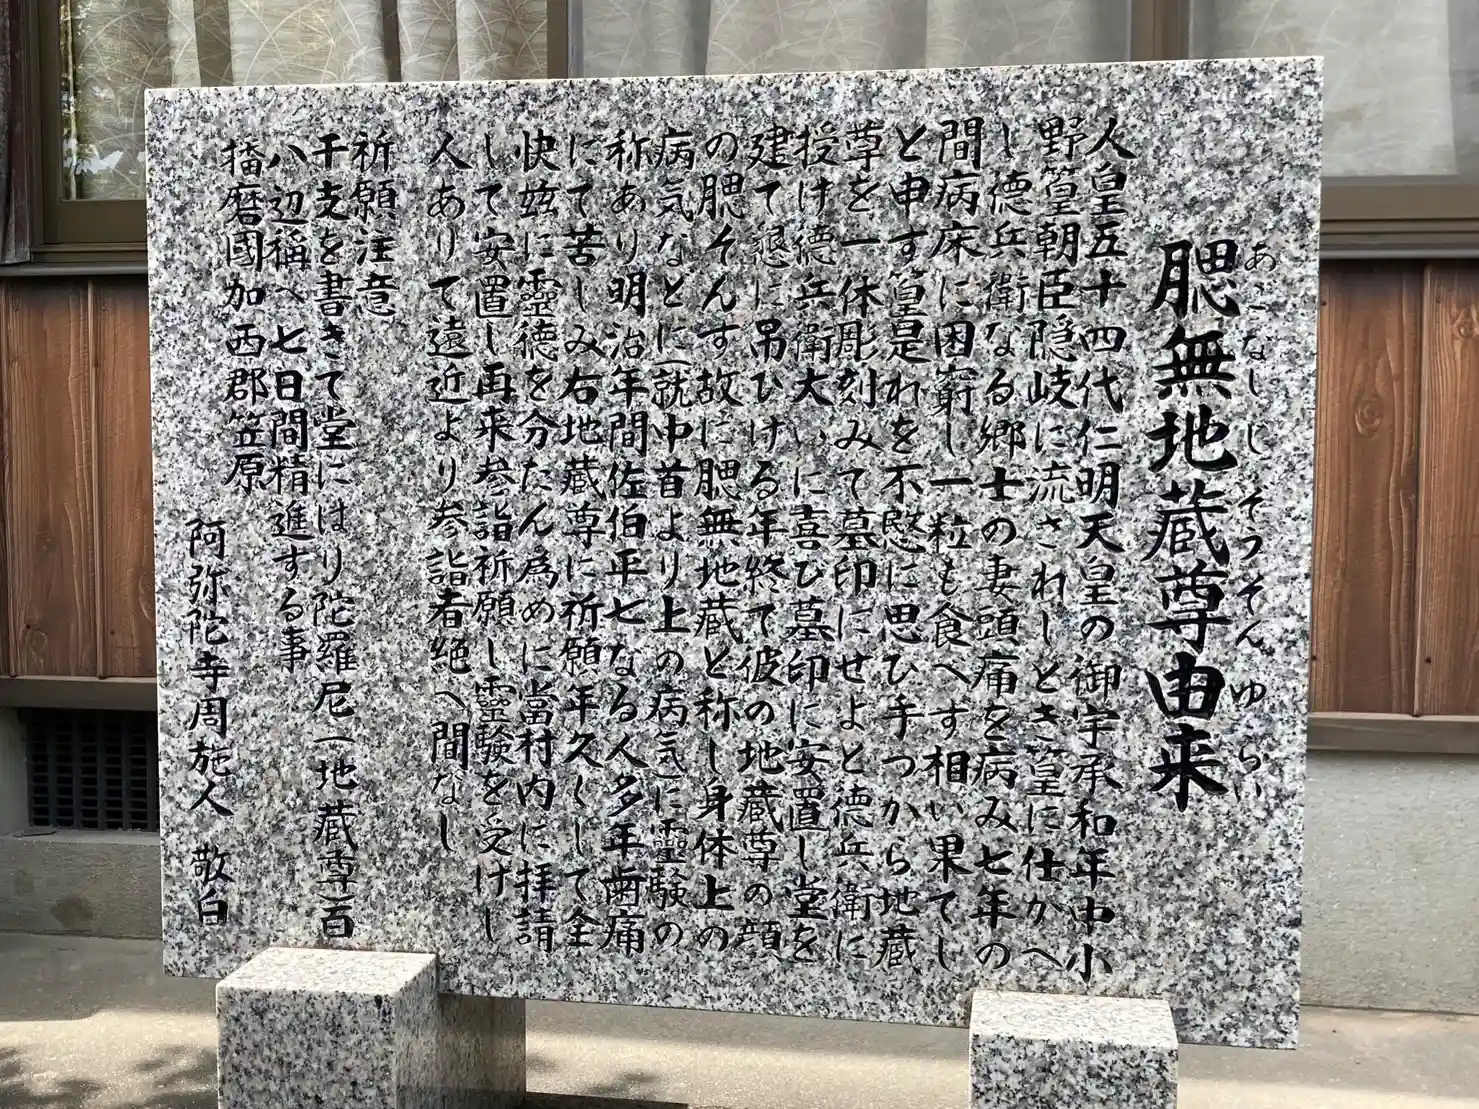 腮無地蔵尊由来
あごなしじぞうそんゆらい
人皇五十四代仁明天皇の御宇承和年中小
野篁朝臣隠岐に流されしとき篁に仕かへ
し徳兵衛なる郷士の妻頭痛を病み七年の
間病床に困窮し一粒も食へす相い果てし
と申す篁是れを不慰に思ひ手つから地蔵
尊を一体彫刻みて墓印にせよと徳兵衛に
授け徳兵衛大いに喜び墓印に安置し堂を
建て懇に吊ひける年終て彼の地蔵尊の顔
の腮そんす故に腮無地蔵と称し身体上の
病気などに(就中首より上の病気)に霊験の
称あり明治年間佐伯平七なる人多年歯痛
にて苦しみ右地蔵尊に祈願年久くして全
快玆に靈徳を分たん為めに當村内に拝請
して安置し再来参詣祈願し靈験を受けし
人ありて遠近より参詣者絶へ間なし
祈願注意
干支を書きて堂にはり陀羅尼(地蔵尊)百
八辺稱へ七日間精進する事
播磨國加西郡笠原
阿弥陀寺周施人 敬白